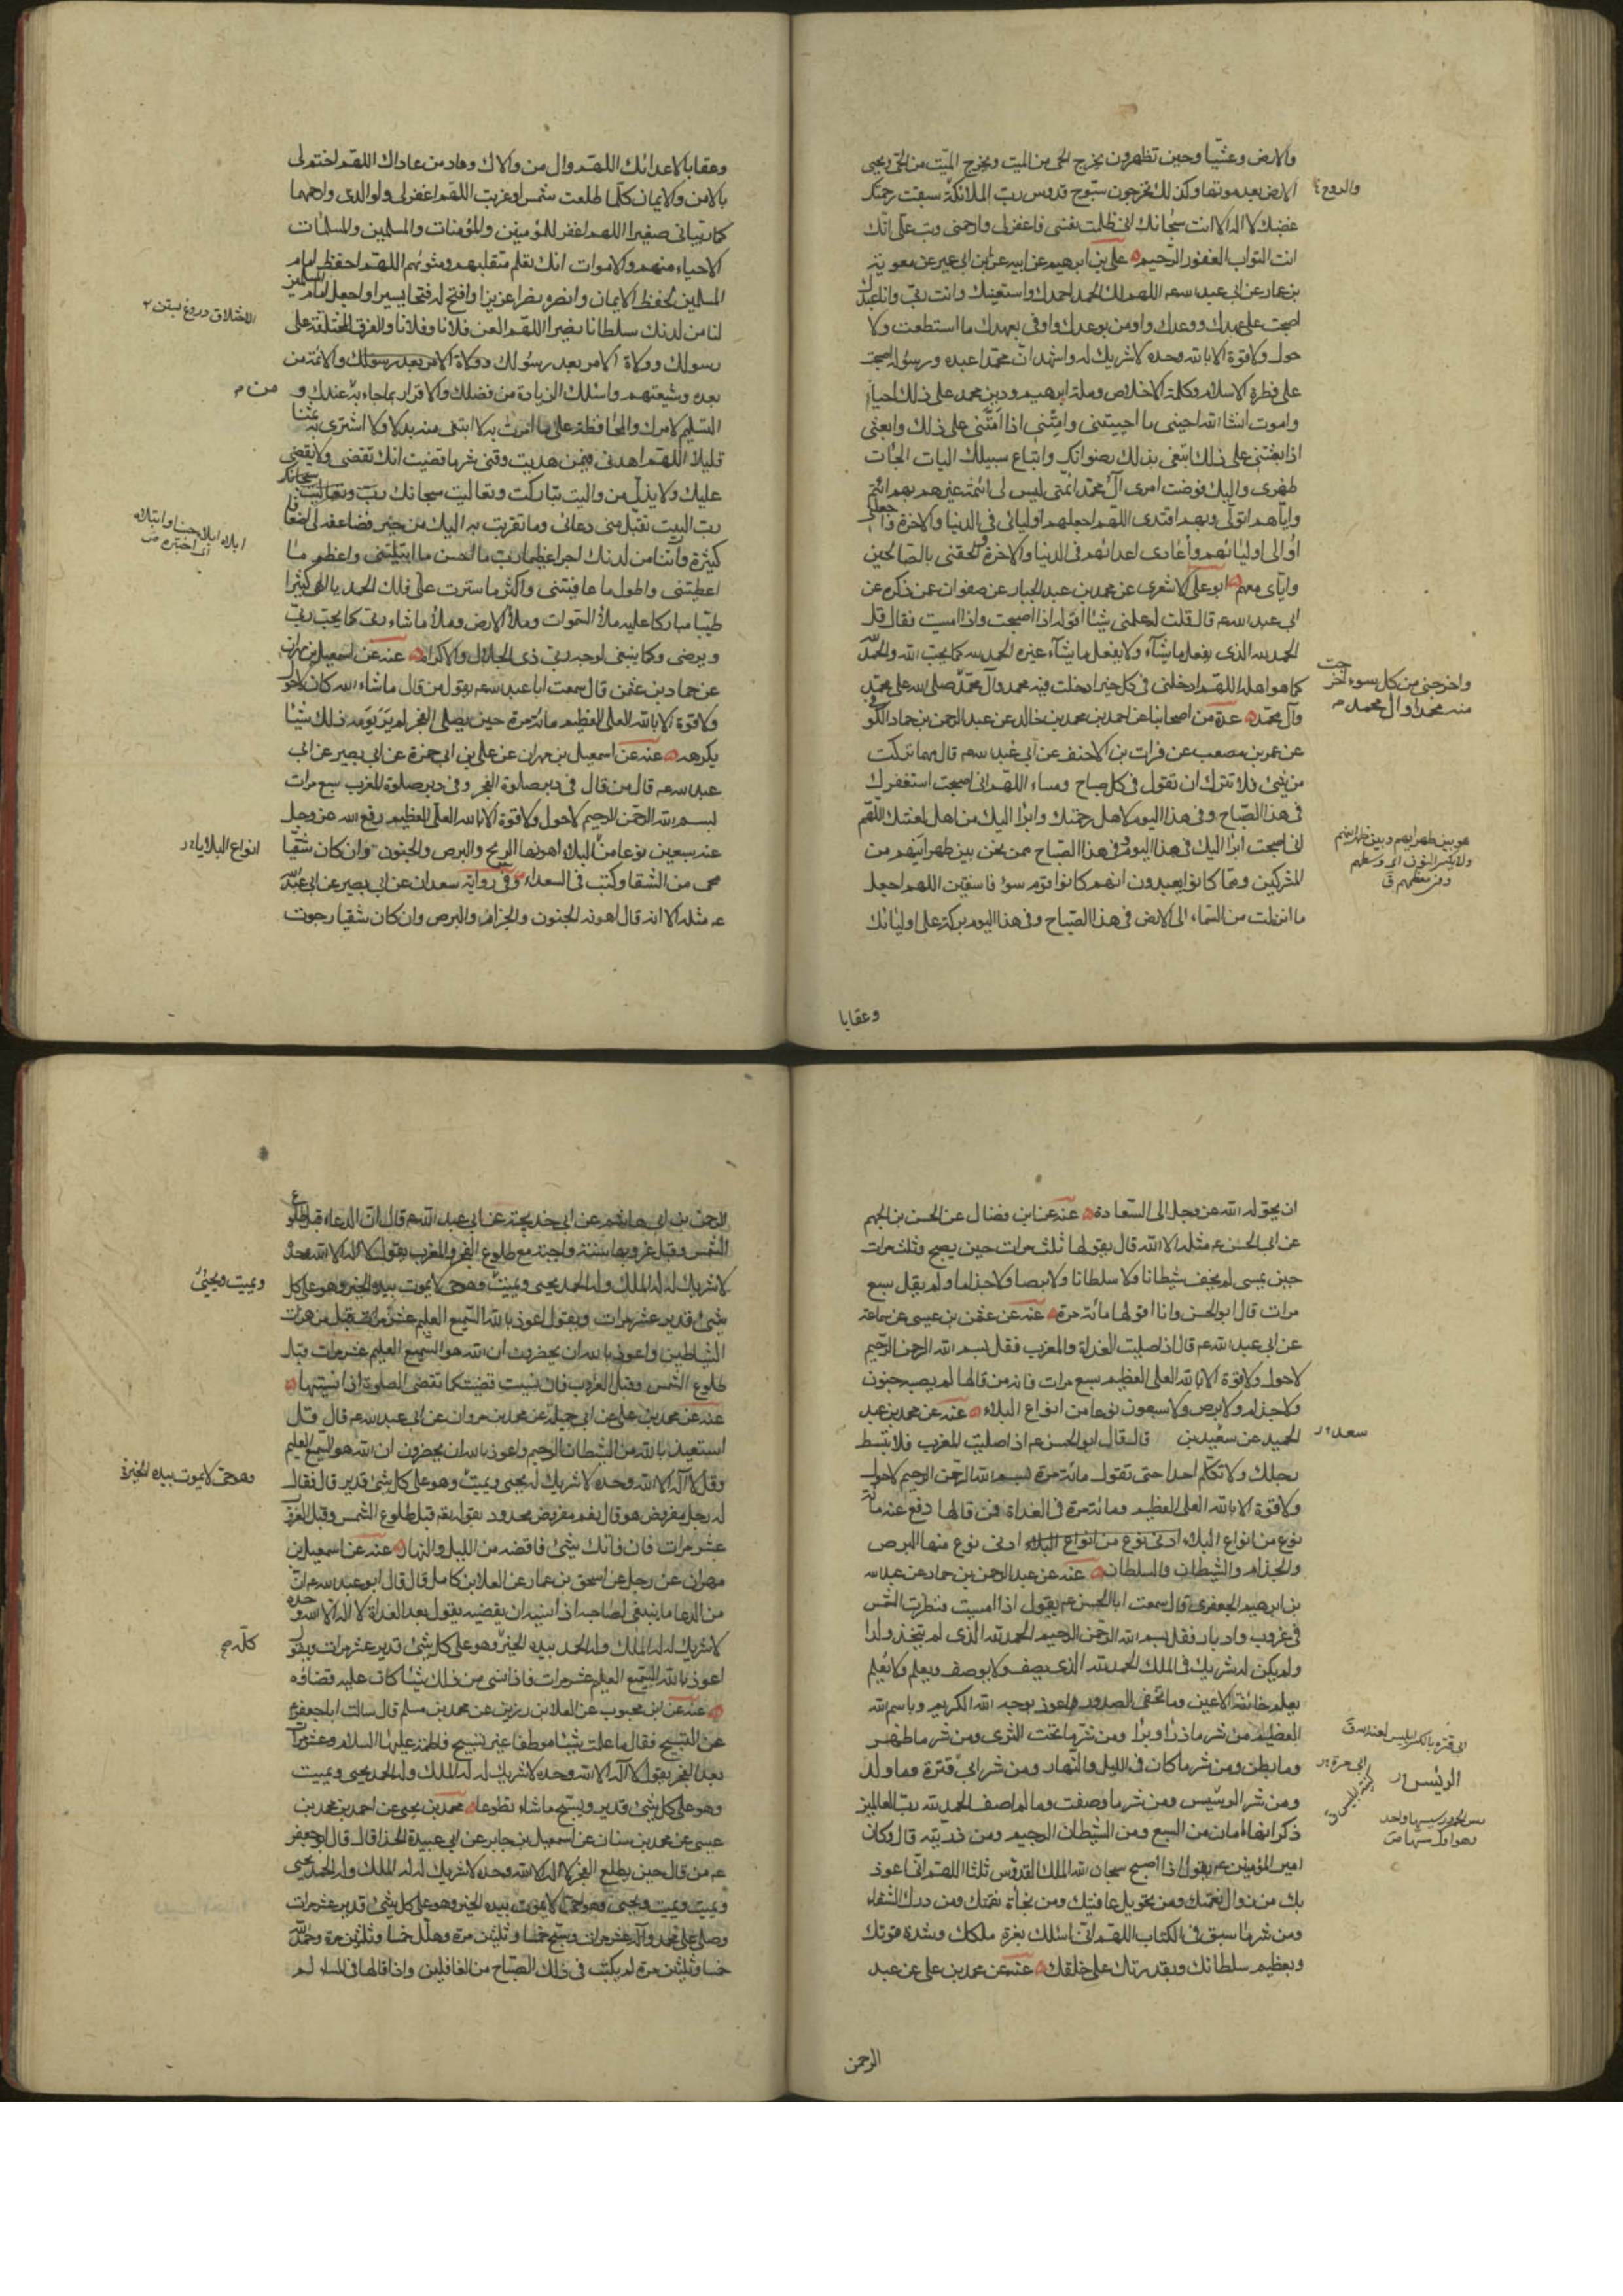 والارض وعشيا وحين تظهرون يخرج الحى من الميت ويخرج الميت من الحى ويحيى
الارض بعد موتها وكذلك تخرجون سبوح قدوس رب الملائكة سبقت رحمتك
والروح
غضبك لا اله الا انت سبحانك انى ظلمت نفسى فاغفر لى وارحمنى وتب على انك
انت التواب الغفور الرحيم على بن ابرهيم عن ابيه عن ابن ابى عمير عن معوية
بن عمار عن ابى عبد الله ع اللهم لك الحمد احمدك واستعينك وانت ربى وانا عبدك
اصبحت على عهدك ووعدك واومن بوعدك واوفى بعهدك ما استطعت ولا
حول ولا قوة الا بالله وحده لا شريك له واشهد ان محمدا عبده ورسوله اصبحت
على فطرة الاسلام وكلمة الاخلاص وملة ابرهيم ودين محمد على ذلك احيا
واموت انشا الله احينى ما احييتنى وامتنى اذا امتنى على ذلك وابعثنى
اذا بعثتنى على ذلك ابتغى بذلك رضوانك واتباع سبيلك اليك الجات
ظهرى واليك فوضت امرى آل محمد ائمتى ليس لى ائمة غيرهم بهم ائتم
واياهم اتولى وبهم اقتدى اللهم اجعلهم اوليائى فى الدنيا والاخرة واجعلنى
اوالى اوليائهم واعادى اعدائهم فى الدنيا والاخرة والحقنى بالصالحين
واباى معهم ابو على الاشعرى عن محمد بن عبد الجبار عن صفوان عمن ذكره عن
ابى عبد الله ع قال قلت له علمنى شيئا اقوله اذا اصبحت واذا امسيت فقال قل
الحمد لله الذى يفعل ما يشآء ولا يفعل ما يشآء غيره الحمد لله كما يحب الله والحمد لله
كما هو اهله اللهم ادخلنى فى كل خير ادخلت فيه محمد وآل محمد صلى الله على محمد
واخرجنى من كل سوء اخرجت
منه محمدا وال محمد
وآل محمد عدة من اصحابنا عن احمد بن محمد بن خالد عن عبد الرحمن بن حماد الكوفى
عن عمرو بن مصعب عن فرات بن الاحنف عن ابى عبد الله ع قال مهما تركت
من شئ فلا تترك ان تقول فى كل صباح ومساء اللهم انى اصبحت استغفرك
فى هذا الصباح وفى هذا اليوم لاهل رحمتك وابرأ اليك من اهل لعنتك اللهم
انى اصبحت ابرأ اليك فى هذا اليوم وفى هذا الصباح ممن نحن بين ظهرانيهم من
المشركين ومما كانوا يعبدون انهم كانوا قوم سوء فاسقين اللهم اجعل
ما انزلت من السماء الى الارض فى هذا الصباح وفى هذا اليوم بركة على اوليائك
وعقابا
وعقابا لاعدائك اللهم وال من والاك وعاد من عاداك اللهم اختم لى
بالامن والايمان كلما طلعت شمس او غربت اللهم اغفر لى ولوالدى وارحمهما
كما ربيانى صغيرا اللهم اغفر للمؤمنين والمؤمنات والمسلمين والمسلمات
الاحياء منهم والاموات انك تعلم متقلبهم ومثويهم اللهم احفظ امام
المسلمين بحفظ الايمان وانصره نصرا عزيزا وافتح له فتحا يسيرا واجعل لامام المسلمين
لنا من لدنك سلطانا نصيرا اللهم العن فلانا وفلانا والفرق المختلفة على
الاختلاق دروغ بستن
رسولك وولاة الامر بعد رسولك وولاة الامر بعد رسولك والائمة من
بعده وشيعتهم واسئلك الزيادة من فضلك والاقرار بما جاء به عندك و
من
التسليم لامرك والمحافظة على ما امرت به لا ابتغى منه بدلا ولا اشترى به ثمنا
قليلا اللهم اهدنى فيمن هديت وقنى شر ما قضيت انك تقضى ولا يقضى
عليك ولا يذل من واليت تباركت وتعاليت سبحانك رب وتعاليت سبحانك
رب البيت تقبل منى دعائى وما تقربت به اليك من خير فضاعفه لى اضعافا
كثيرة وآتنا من لدنك اجرا عظيما رب ما احسن ما ابتليتنى واعظم ما
اعطيتنى واطول ما عافيتنى واكثر ما سترت على فلك الحمد يا الهى كثيرا
طيبا مباركا عليه ملأ السموات وملأ الارض وملأ ما شاء ربى كما يحب ربى
ويرضى وكما ينبغى لوجه ربى ذى الجلال والاكرام عنه عن اسمعيل بن مهران
عن حماد بن عثمن قال سمعت ابا عبد الله ع يقول من قال ما شاء الله كان لا حول
ولا قوة الا بالله العلى العظيم مائة مرة حين يصلى الفجر لم ير يومه ذلك شيئا
يكرهه عنه عن اسمعيل بن مهران عن على بن ابى حمزة عن ابى بصير عن ابى
عبد الله ع قال من قال فى دبر صلوة الفجر وفى دبر صلوة المغرب سبع مرات
بسم الله الرحمن الرحيم لا حول ولا قوة الا بالله العلى العظيم رفع الله عز وجل
عنه سبعين نوعا من البلاء اهونها الريح والبرص والجنون وان كان شقيا
انواع البلايا
محى من الشقا وكتب فى السعداء وفى رواية سعدان عن ابى بصير عن ابى عبد الله
ع مثله الا انه قال اهونه الجنون والجذام والبرص وان كان شقيا رجوت
ان يحوله الله عز وجل الى السعادة عنه عن ابن فضال عن الحسن بن الجهم
عن ابى الحسن ع مثله الا انه قال يقولها ثلث مرات حين يصبح وثلث مرات
حين يمسى لم يخف شيطانا ولا سلطانا ولا برصا ولا جذاما ولم يقل سبع
مرات قال ابو الحسن وانا اقولها مائة مرة عنه عن عثمن بن عيسى عن سماعة
عن ابى عبد الله ع قال اذا صليت الغداة والمغرب فقل بسم الله الرحمن الرحيم
لا حول ولا قوة الا بالله العلى العظيم سبع مرات فانه من قالها لم يصبه جنون
ولا جذام ولا برص ولا سبعون نوعا من انواع البلاء عنه عن محمد بن عبد
الحميد عن سعيد بن قال قال ابو الحسن ع اذا صليت المغرب فلا تبسط
سعد
رجلك ولا تكلم احدا حتى تقول مائة مرة بسم الله الرحمن الرحيم لا حول
ولا قوة الا بالله العلى العظيم ومائة مرة فى الغداة فمن قالها دفع عنه مائة
نوع من انواع البلاء ادنى نوع من انواع البلاء ادنى نوع منها البرص
والجذام والشيطان والسلطان عنه عن عبد الرحمن بن حماد عن عبد الله
بن ابرهيم الجعفرى قال سمعت ابا الحسن ع يقول اذا امسيت فنظرت الشمس
فى غروب وادبار فقل بسم الله الرحمن الرحيم الحمد لله الذى لم يتخذ ولدا
ولم يكن له شريك فى الملك الحمد لله الذى يصف ولا يوصف ويعلم ولا يعلم
يعلم خائنة الاعين وما تخفى الصدور واعوذ بوجه الله الكريم وباسم الله
العظيم من شر ما ذرأ وبرأ ومن شر ما تحت الثرى ومن شر ما ظهر
وما بطن ومن شر ما كان فى الليل والنهار ومن شر ابى قترة وما ولد
ومن شر الرسيس ومن شر ما وصفت وما لم اصف الحمد لله رب العالمين
ذكر انها امان من السبع ومن الشيطان الرجيم ومن ذريته قال وكان
امير المؤمنين ع يقول اذا اصبح سبحان الله الملك القدوس ثلثا اللهم انى اعوذ
بك من زوال نعمتك ومن تحويل عافيتك ومن فجأة نقمتك ومن درك الشقاء
ومن شر ما سبق فى الكتاب اللهم انى اسئلك بعزة ملكك وشدة قوتك
وبعظيم سلطانك وبقدرتك على خلقك عنه عن محمد بن على عن عبد
الرحمن
الرحمن بن ابى هاشم عن ابى خديجة عن ابى عبد الله ع قال ان الدعاء قبل طلوع
الشمس وقبل غروبها سنة واجبة مع طلوع الفجر والمغرب يقول لا اله الا الله وحده
لا شريك له له الملك وله الحمد يحيى ويميت وهو حى لا يموت بيده الخير وهو على كل
ويميت ويحيى
شئ قدير عشر مرات ويقول اعوذ بالله السميع العليم من همزات
الشياطين واعوذ بالله ان يحضرون ان الله هو السميع العليم عشر مرات قبل
طلوع الشمس وقبل الغروب فان نسيت قضيت كما تقضى الصلوة اذا نسيتها
عنه عن محمد بن على عن ابى جميلة عن محمد بن مروان عن ابى عبد الله ع قال قل
استعيذ بالله من الشيطان الرجيم واعوذ بالله ان يحضرون ان الله هو السميع العليم
وقل لا اله الا الله وحده لا شريك له يحيى ويميت وهو على كل شئ قدير قال فقال
وهو حى لا يموت بيده الخير
له رجل مفروض هو قال نعم مفروض محدود تقوله قبل طلوع الشمس وقبل الغروب
عشر مرات فان فاتك شئ فاقضه من الليل والنهار عنه عن اسمعيل بن
مهران عن رجل عن اسحق بن عمار عن العلا بن كامل قال قال ابو عبد الله ع ان
من الدعا ما ينبغى لصاحبه اذا نسيه ان يقضيه يقول بعد الغداة لا اله الا الله وحده
لا شريك له له الملك وله الحمد بيده الخير وهو على كل شئ قدير عشر مرات ويقول
اعوذ بالله السميع العليم عشر مرات فاذا نسى من ذلك شيئا كان عليه قضاؤه
عنه عن ابن محبوب عن العلا بن رزين عن محمد بن مسلم قال سالت ابا جعفر ع
عن التسبيح فقال ما علمت شيئا موظفا غير تسبيح فاطمة عليها السلام وعشر مرات
بعد الفجر يقول لا اله الا الله وحده لا شريك له له الملك وله الحمد يحيى ويميت
وهو على كل شئ قدير ويسبح ما شاء تطوعا محمد بن يحيى عن احمد بن محمد بن
عيسى عن محمد بن سنان عن اسمعيل بن جابر عن ابى عبيدة الحذا قال قال ابو جعفر
ع من قال حين يطلع الفجر لا اله الا الله وحده لا شريك له له الملك وله الحمد يحيى
ويميت ويميت ويحيى وهو حى لا يموت بيده الخير وهو على كل شئ قدير عشر مرات
وصلى على محمد وآله عشر مرات وسبح خمسا وثلثين مرة وهلل خمسا وثلثين مرة وحمد الله
خمسا وثلثين مرة لم يكتب فى ذلك الصباح من الغافلين واذا قالها فى المساء لم